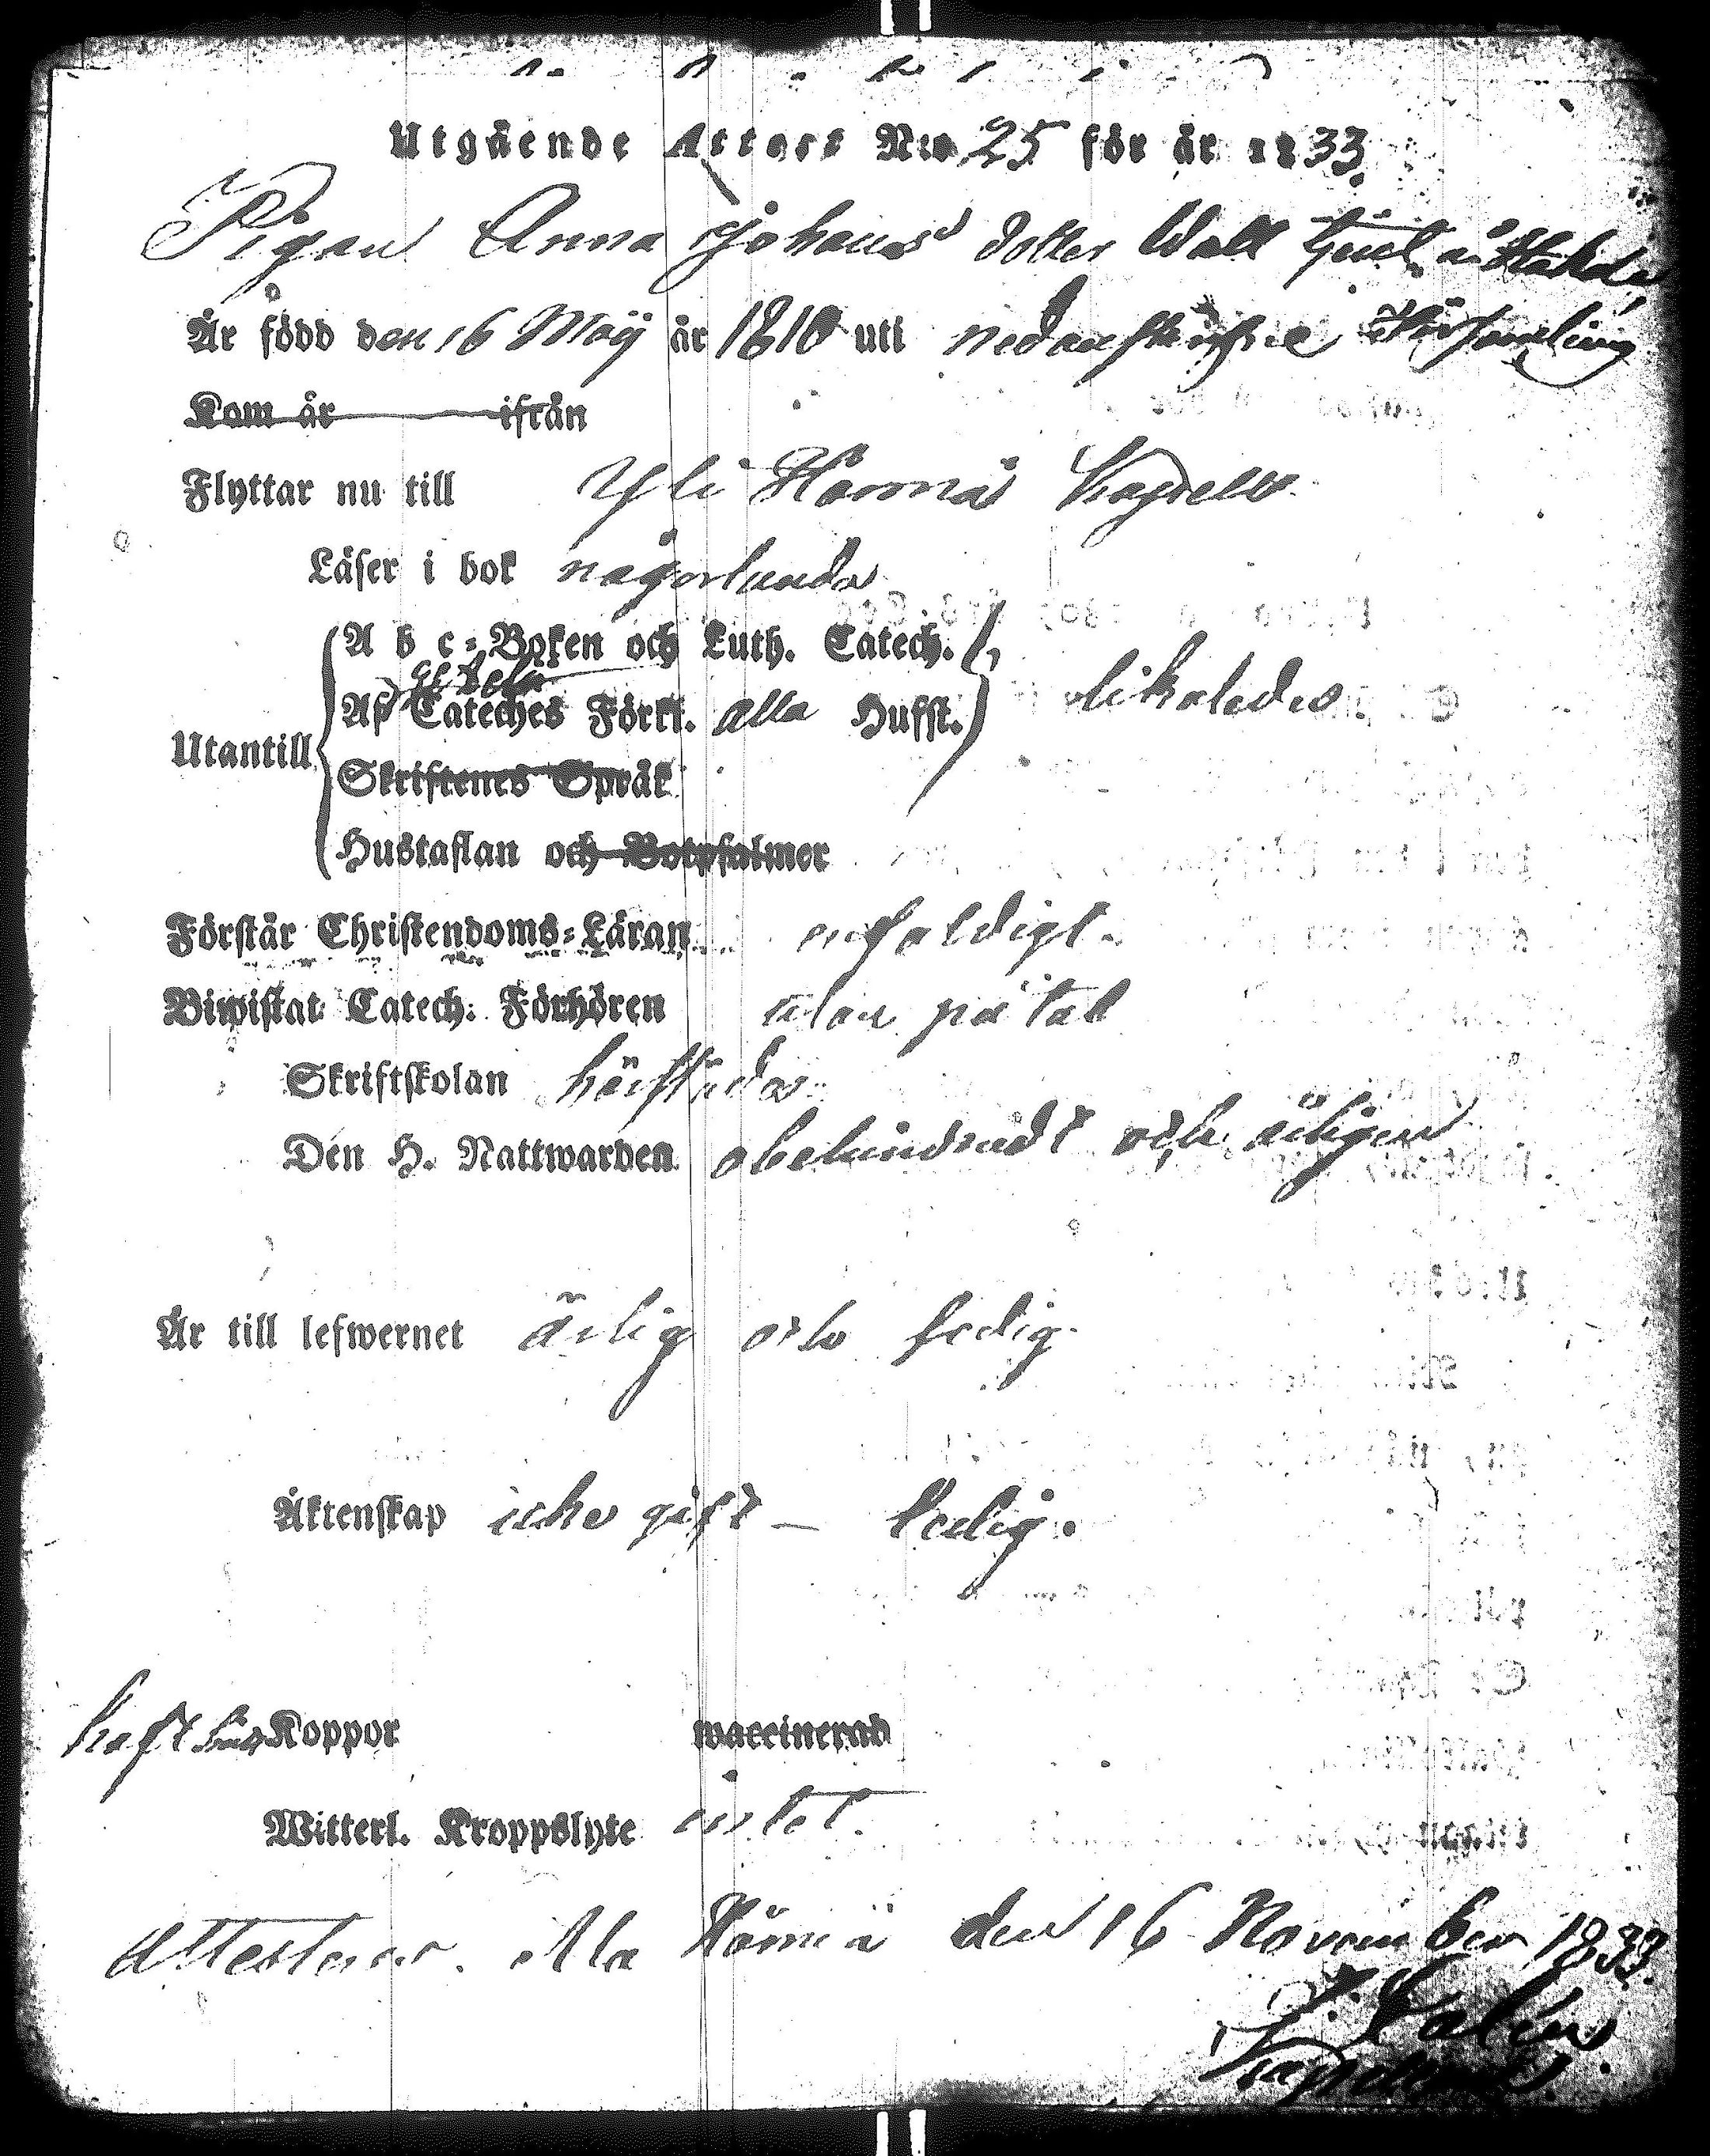 Utgående Attest N:o 25 för år 1833.
Pigan Anna Johans dotter Wall
Är född den 16 Maij år 1810 uti nedanskrifne Församling
Kom år ifrån
Flyttar nu till Yli Kärmä Kapell.
Läser i bok någorlunda
A b c-Boken och Luth. Catech.
Af Cateches Förkl. alla Hufst. likaledes
Utantill
Skriftenes Språk
Hustaflan och Botpsalmer
Förstår Christendoms-Läran enfaldigt.
Biwistat Catech. Förhören utan påtal
Skriftskolan härstädes
Den H. Nattwarden obehindradt och årligen
Är till lefwernet ärlig och fredig.
Äktenskap icke gift — ledig.
haft Koppor waccinerad
Witterl. Kroppslyte intet.
Attesterar. Ala Härmä den 16 November 1833.